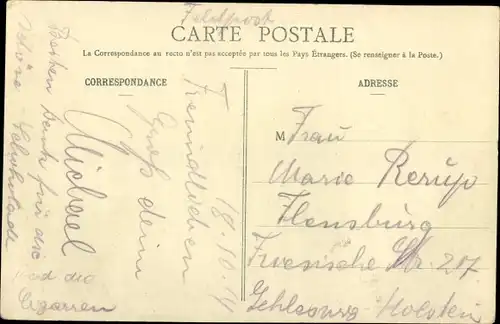 Feldpost
CARTE POSTALE
La Correspondance au recto n'est pas acceptée par tous les Pays Étrangers. (Se renseigner à la Poste.)
CORRESPONDANCE
ADRESSE
18.10.14
Freundlichen
Gruß dein
Michael
Besten Dank für die
schöne Schokolade
und die
Cigarren
M Frau
Marie Rerup
Flensburg
Friesische Str. 207
Schleswig Holstein